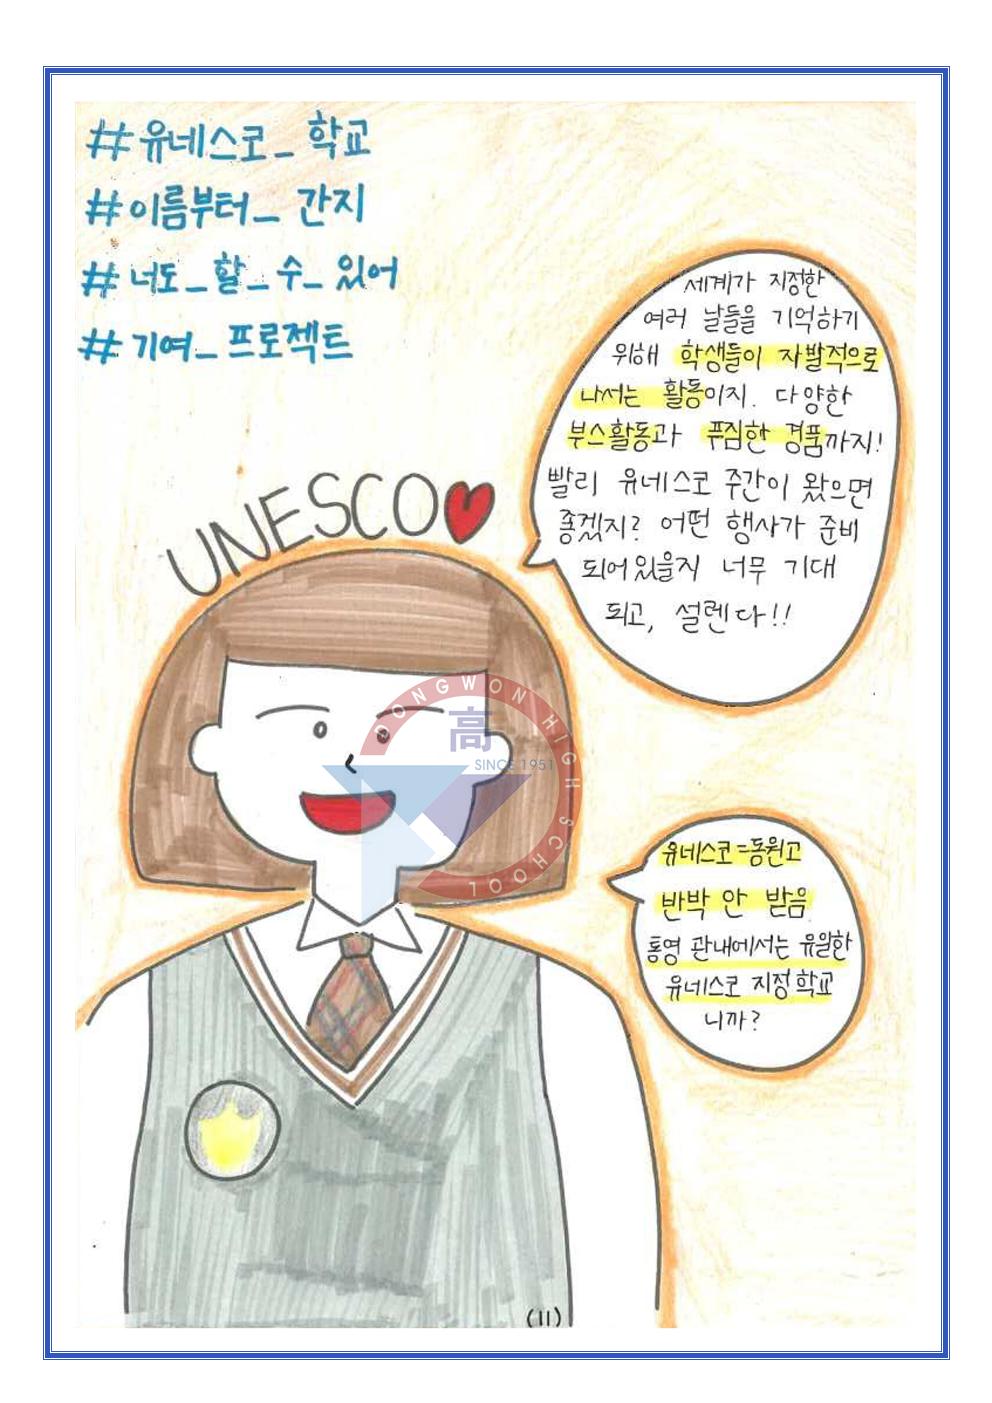 #유네스코_학교
#이름부터_간지
#너도_할_수_있어
#기여_프로젝트
세계가 지정한
여러 날들을 기억하기
위해 학생들이 자발적으로
나서는 활동이지. 다양한
부스활동과 푸짐한 경품까지!
빨리 유네스코 주간이 왔으면
좋겠지? 어떤 행사가 준비
되어있을지 너무 기대
되고, 설렌다!!
UNESCO
DONGWON HIGH SCHOOL
高
SINCE 1951
유네스코=동원고
반박 안 받음
통영 관내에서는 유일한
유네스코 지정학교
니까?
(11)